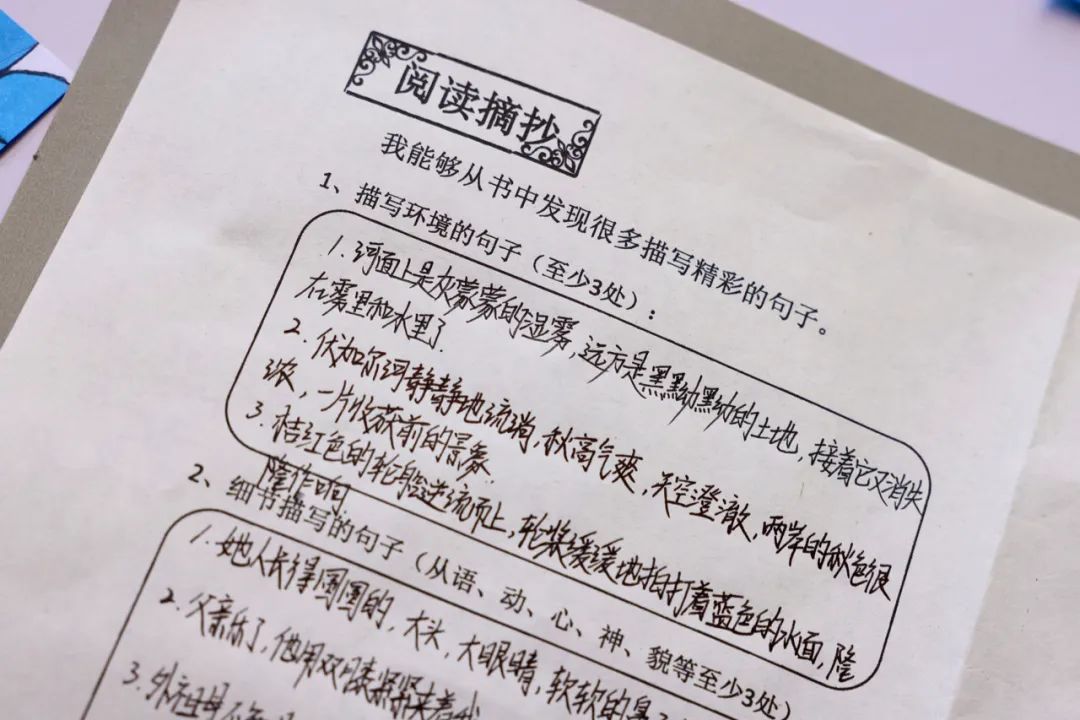 阅读摘抄
我能够从书中发现很多描写精彩的句子。
1、描写环境的句子（至少3处）：
1.河面上是灰蒙蒙的湿雾，远方是黑黝黝的土地，接着它又消失
在雾里和水里了.
2.伏加尔河静静地流淌，秋高气爽，天空澄澈，两岸的秋色很
浓，一片收获前的景象.
3.桔红色的轮船逆流而上，轮桨缓缓地拍打着蓝色的水面，隆
隆作响
2、细节描写的句子（从语、动、心、神、貌等至少3处）
1.她人长得圆圆的，大头，大眼睛，软软的鼻
2.父亲乐了，他用双膝紧紧夹着我
3.外祖母